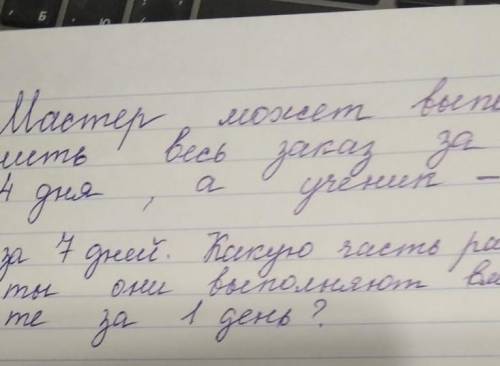 Мастер может выпо
ить весь заказ за
4 дня, а ученик -
за 7 дней. Какую часть ра
ты они выполняют вм
те за 1 день?